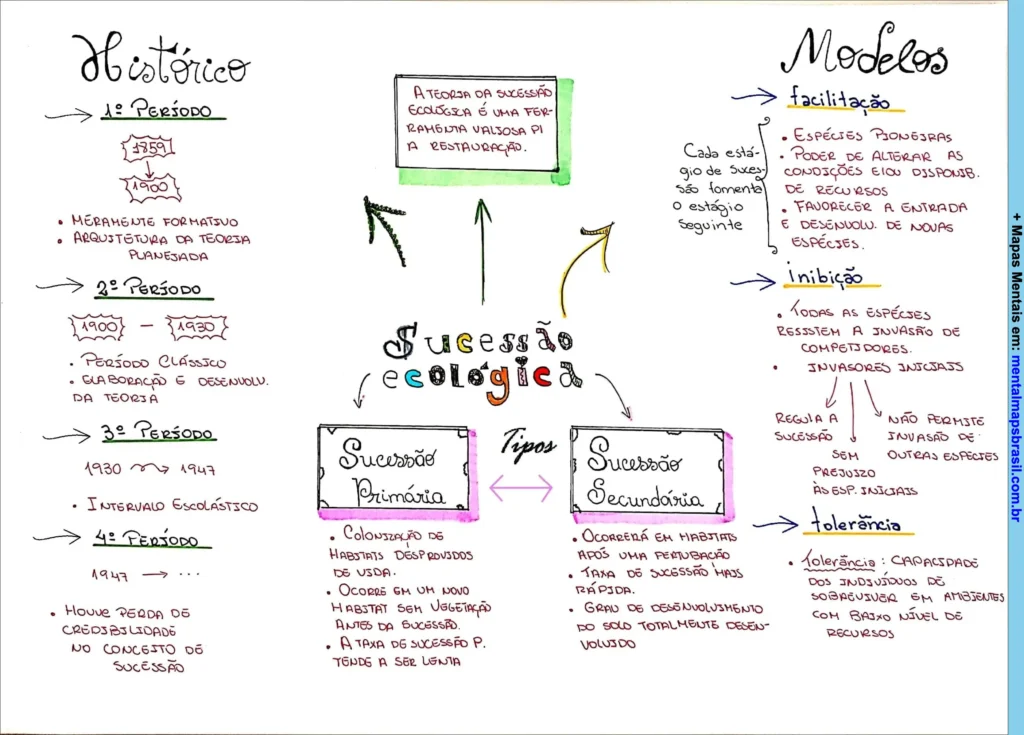 Histórico
1º PERÍODO
1859
1900
• MERAMENTE FORMATIVO
• ARQUITETURA DA TEORIA
PLANEJADA
2º PERÍODO
1900 — 1930
• PERÍODO CLÁSSICO
• ELABORAÇÃO E DESENVOLV.
DA TEORIA
3º PERÍODO
1930 → 1947
• INTERVALO ESCOLÁSTICO
4º PERÍODO
1947 → ...
• HOUVE PERDA DE
CREDIBILIDADE
NO CONCEITO DE
SUCESSÃO
A TEORIA DA SUCESSÃO
ECOLÓGICA É UMA FER-
RAMENTA VALIOSA P/
A RESTAURAÇÃO.
Sucessão
ecológica
Tipos
Sucessão
Primária
• COLONIZAÇÃO DE
HABITATS DESPROVIDOS
DE VIDA.
• OCORRE EM UM NOVO
HABITAT SEM VEGETAÇÃO
ANTES DA SUCESSÃO.
• A TAXA DE SUCESSÃO P.
TENDE A SER LENTA
Sucessão
Secundária
• OCORRERÁ EM HABITATS
APÓS UMA PERTUBAÇÃO
• TAXA DE SUCESSÃO MAIS
RÁPIDA.
• GRAU DE DESENVOLVIMENTO
DO SOLO TOTALMENTE DESEN-
VOLVIDO
Modelos
facilitação
Cada está-
gio de suces-
são fomenta
o estágio
seguinte
• ESPÉCIES PIONEIRAS
• PODER DE ALTERAR AS
CONDIÇÕES E/OU DISPONIB.
DE RECURSOS
• FAVORECER A ENTRADA
E DESENVOLV. DE NOVAS
ESPÉCIES.
inibição
• TODAS AS ESPÉCIES
RESISTEM A INVASÃO DE
COMPETIDORES.
• INVASORES INICIAIS
REGULA A
SUCESSÃO
SEM
PREJUIZO
ÀS ESP. INICIAIS
NÃO PERMITE
INVASÃO DE
OUTRAS ESPÉCIES
tolerância
• Tolerância: CAPACIDADE
DOS INDIVÍDUOS DE
SOBREVIVER EM AMBIENTES
COM BAIXO NÍVEL DE
RECURSOS
+ Mapas Mentais em: mentalmapsbrasil.com.br